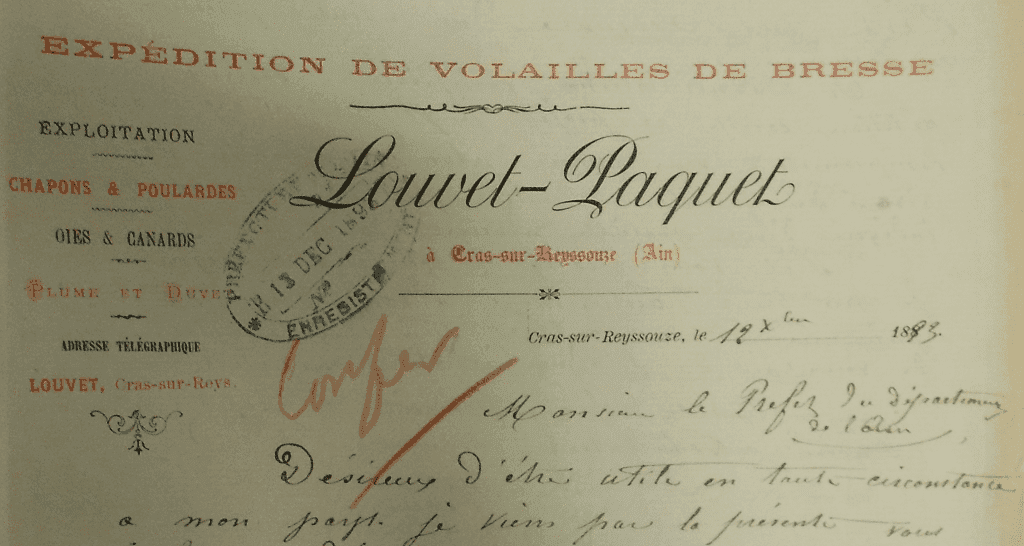 EXPÉDITION DE VOLAILLES DE BRESSE
EXPLOITATION
CHAPONS & POULARDES
OIES & CANARDS
PLUME ET DUVET
ADRESSE TÉLÉGRAPHIQUE
LOUVET, Cras-sur-Reys.
Louvet-Paquet
à Cras-sur-Reyssouze (Ain)
PRÉFECTURE
13 DEC 189
No
ENREGISTR
Cras-sur-Reyssouze, le 12 Xbre 1893.
Monsieur le Préfet du département
de l'Ain
Désireux d'être utile en toute circonstance
a mon pays. je viens par la présente vous